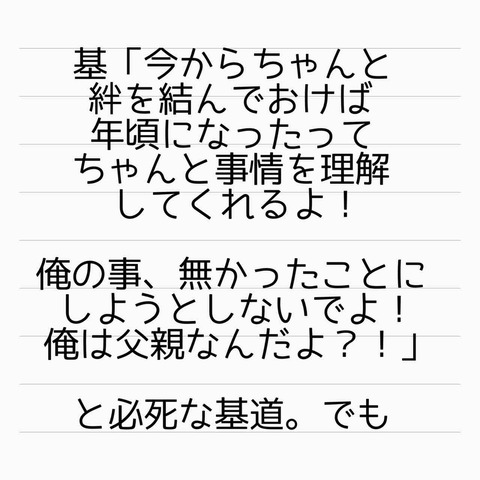 基「今からちゃんと
絆を結んでおけば
年頃になったって
ちゃんと事情を理解
してくれるよ！
俺の事、無かったことに
しようとしないでよ！
俺は父親なんだよ？！」
と必死な基道。でも